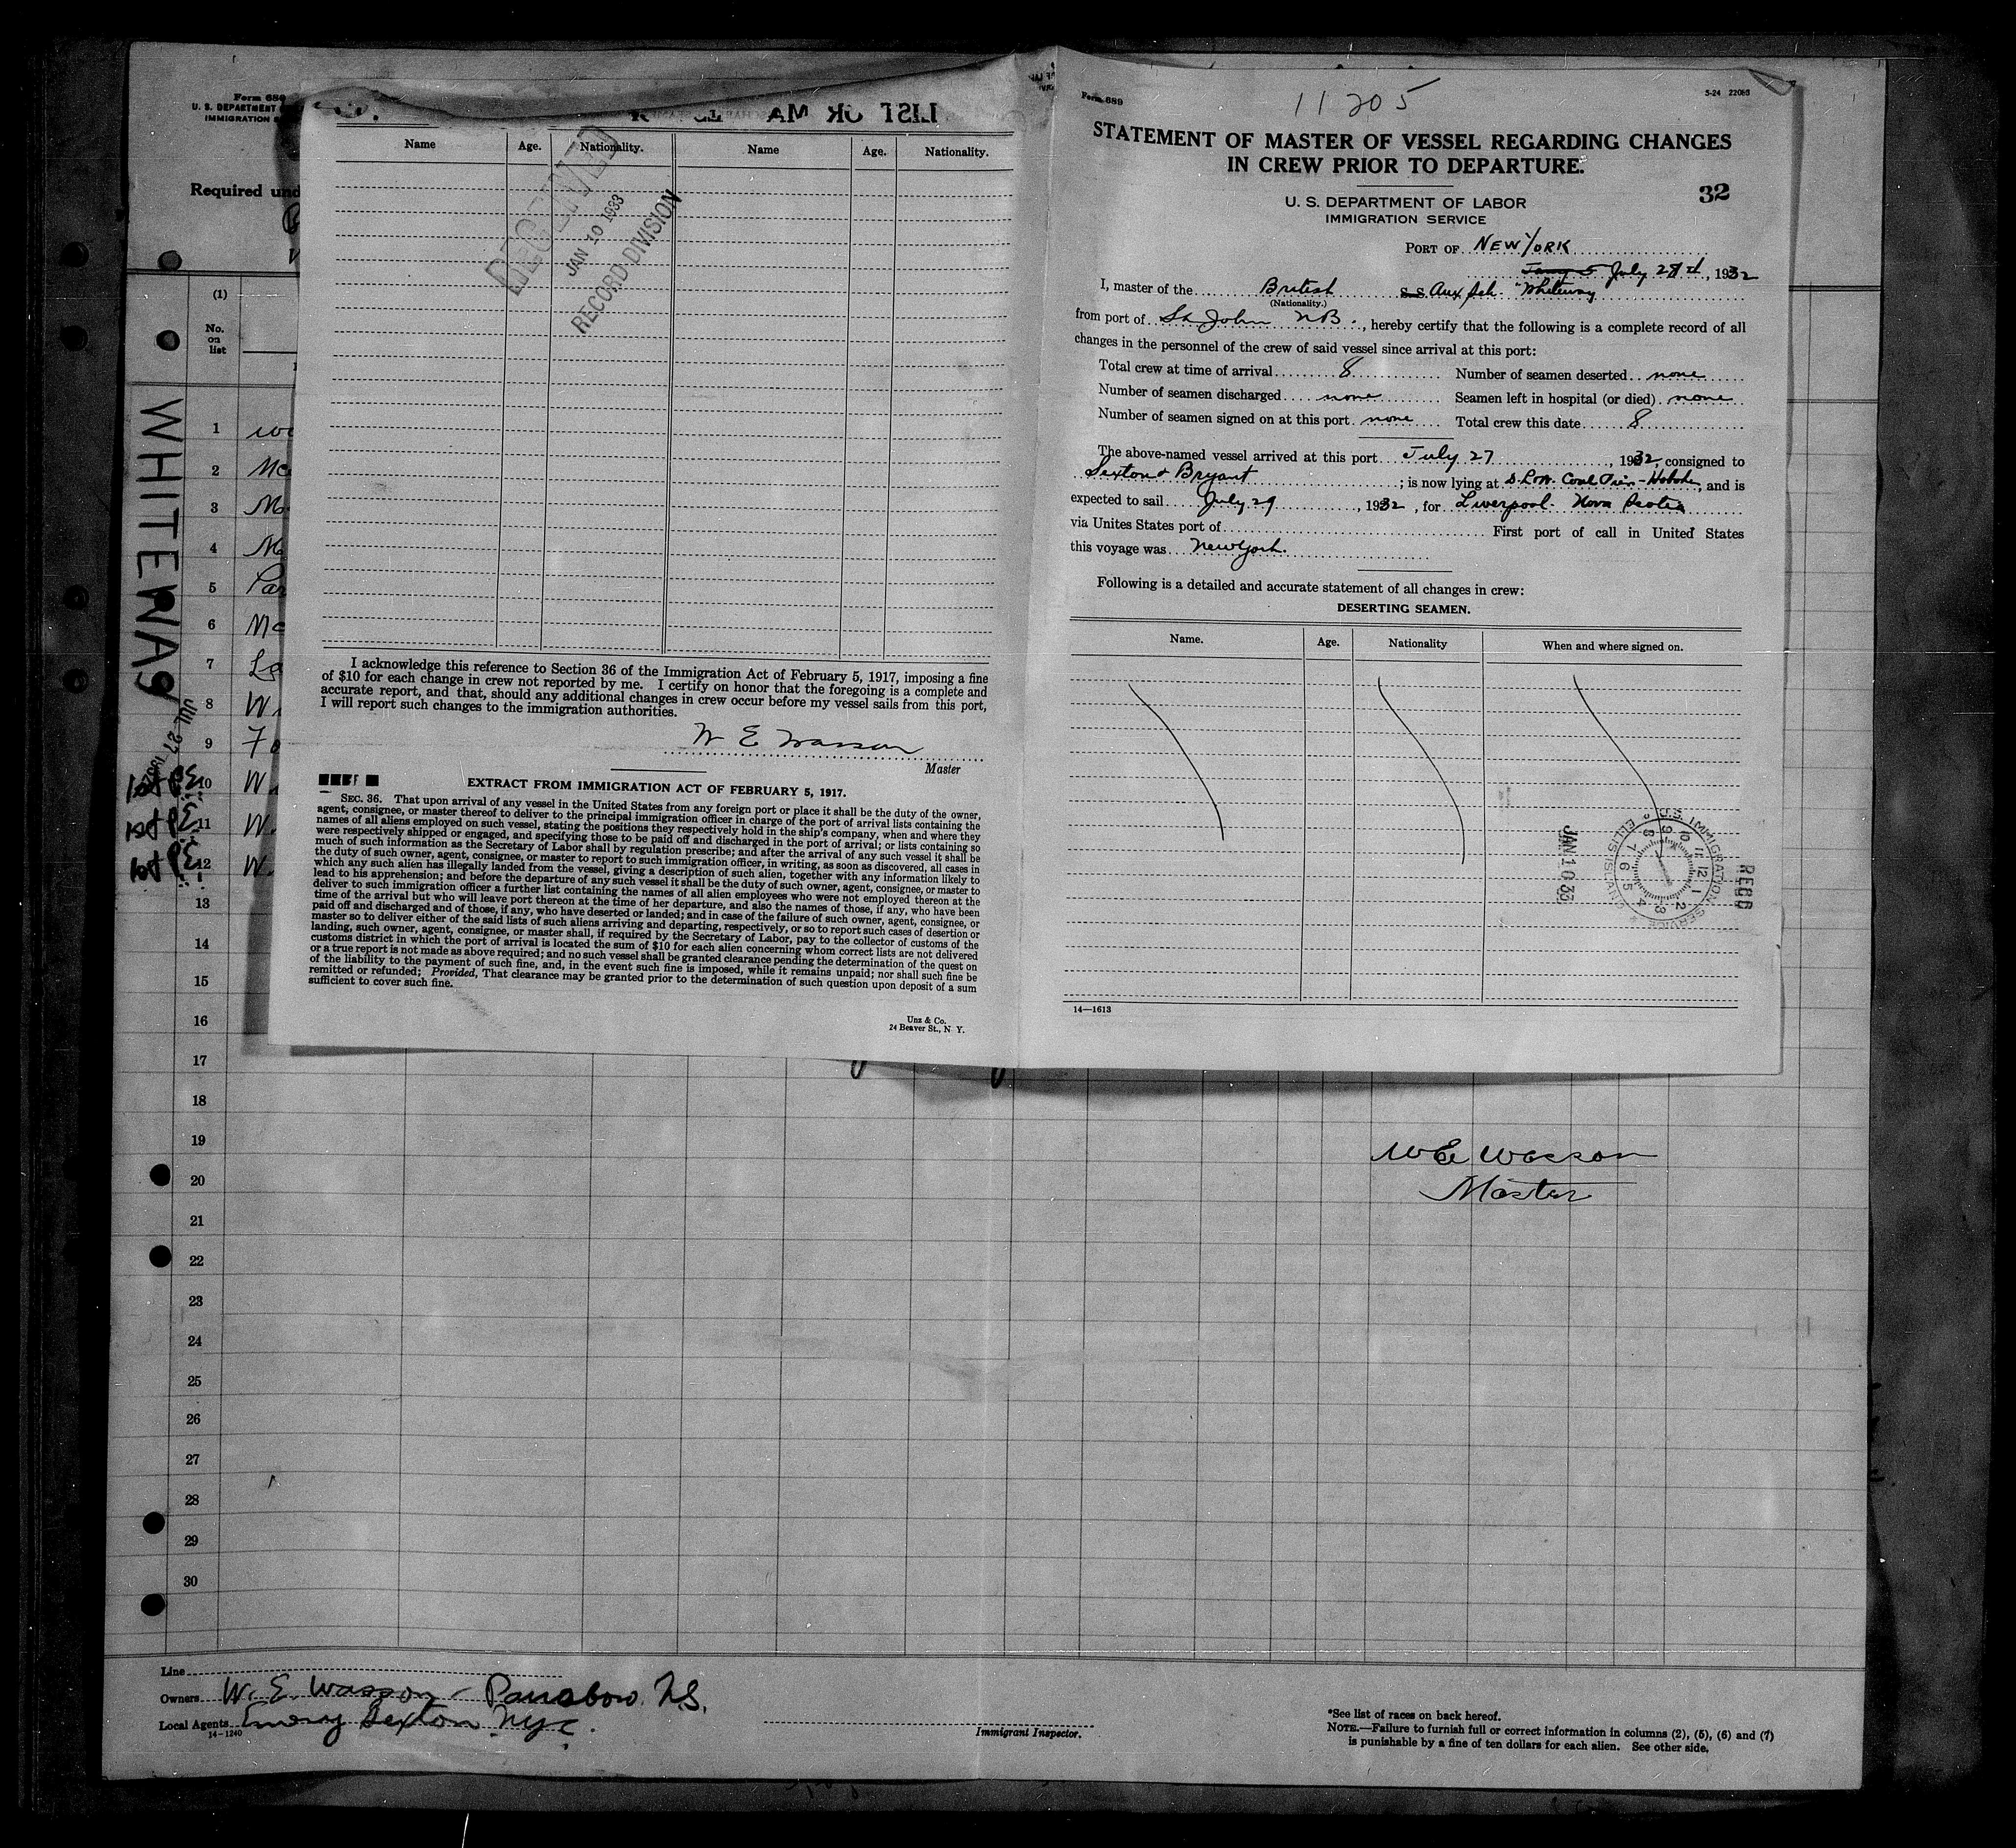 Form 689
U. S. DEPARTMENT
IMMIGRATION S
Required und
(1)
No.
on
list
WHITEWAY
JUL 27
1
2
3
4
5 Par
6
7
8
9
10
11
12
13
14
15
16
17
18
19
20
21
22
23
24
25
26
27
28
29
30
LIST OR MA
Name Age. Nationality. Name Age. Nationality.
RECEIVED
JAN 10 1933
RECORD DIVISION
I acknowledge this reference to Section 36 of the Immigration Act of February 5, 1917, imposing a fine
of $10 for each change in crew not reported by me. I certify on honor that the foregoing is a complete and
accurate report, and that, should any additional changes in crew occur before my vessel sails from this port,
I will report such changes to the immigration authorities.
W E Wasson
Master
EXTRACT FROM IMMIGRATION ACT OF FEBRUARY 5, 1917.
SEC. 36. That upon arrival of any vessel in the United States from any foreign port or place it shall be the duty of the owner,
agent, consignee, or master thereof to deliver to the principal immigration officer in charge of the port of arrival lists containing the
names of all aliens employed on such vessel, stating the positions they respectively hold in the ship's company, when and where they
were respectively shipped or engaged, and specifying those to be paid off and discharged in the port of arrival; or lists containing so
much of such information as the Secretary of Labor shall by regulation prescribe; and after the arrival of any such vessel it shall be
the duty of such owner, agent, consignee, or master to report to such immigration officer, in writing, as soon as discovered, all cases in
which any such alien has illegally landed from the vessel, giving a description of such alien, together with any information likely to
lead to his apprehension; and before the departure of any such vessel it shall be the duty of such owner, agent, consignee, or master to
deliver to such immigration officer a further list containing the names of all alien employees who were not employed thereon at the
time of the arrival but who will leave port thereon at the time of her departure, and also the names of those, if any, who have been
paid off and discharged and of those, if any, who have deserted or landed; and in case of the failure of such owner, agent, consignee, or
master so to deliver either of the said lists of such aliens arriving and departing, respectively, or so to report such cases of desertion or
landing, such owner, agent, consignee, or master shall, if required by the Secretary of Labor, pay to the collector of customs of the
customs district in which the port of arrival is located the sum of $10 for each alien concerning whom correct lists are not delivered
or a true report is not made as above required; and no such vessel shall be granted clearance pending the determination of the quest on
of the liability to the payment of such fine, and, in the event such fine is imposed, while it remains unpaid; nor shall such fine be
remitted or refunded; Provided, That clearance may be granted prior to the determination of such question upon deposit of a sum
sufficient to cover such fine.
Unz & Co.
24 Beaver St., N Y.
Form 689
11205
5-24 22063
STATEMENT OF MASTER OF VESSEL REGARDING CHANGES
IN CREW PRIOR TO DEPARTURE.
32
U. S. DEPARTMENT OF LABOR
IMMIGRATION SERVICE
PORT OF NEW YORK
July , 1932
I, master of the British S.S. Aux Sch "Whiteway
(Nationality.)
from port of St John NB., hereby certify that the following is a complete record of all
changes in the personnel of the crew of said vessel since arrival at this port:
Total crew at time of arrival 8 Number of seamen deserted none
Number of seamen discharged none Seamen left in hospital (or died) none
Number of seamen signed on at this port none Total crew this date 8
The above-named vessel arrived at this port July 27, 1932, consigned to
Sexton & Bryant; is now lying at Coal Pier-, and is
expected to sail July 29, 1932, for Liverpool. Nova Scotia
via Unites States port of First port of call in United States
this voyage was New York.
Following is a detailed and accurate statement of all changes in crew:
DESERTING SEAMEN.
Name. Age. Nationality When and where signed on.
JAN 10 33
U.S. IMMIGRATION SERVICE
ELLIS ISLAND
REC'D
14—1613
W E Wasson
Master
Line
Owners W. E. Wasson - N.S.
Local Agents Emery Sexton NYC.
14-1240
Immigrant Inspector.
*See list of races on back hereof.
NOTE.—Failure to furnish full or correct information in columns (2), (5), (6) and (7)
is punishable by a fine of ten dollars for each alien. See other side.